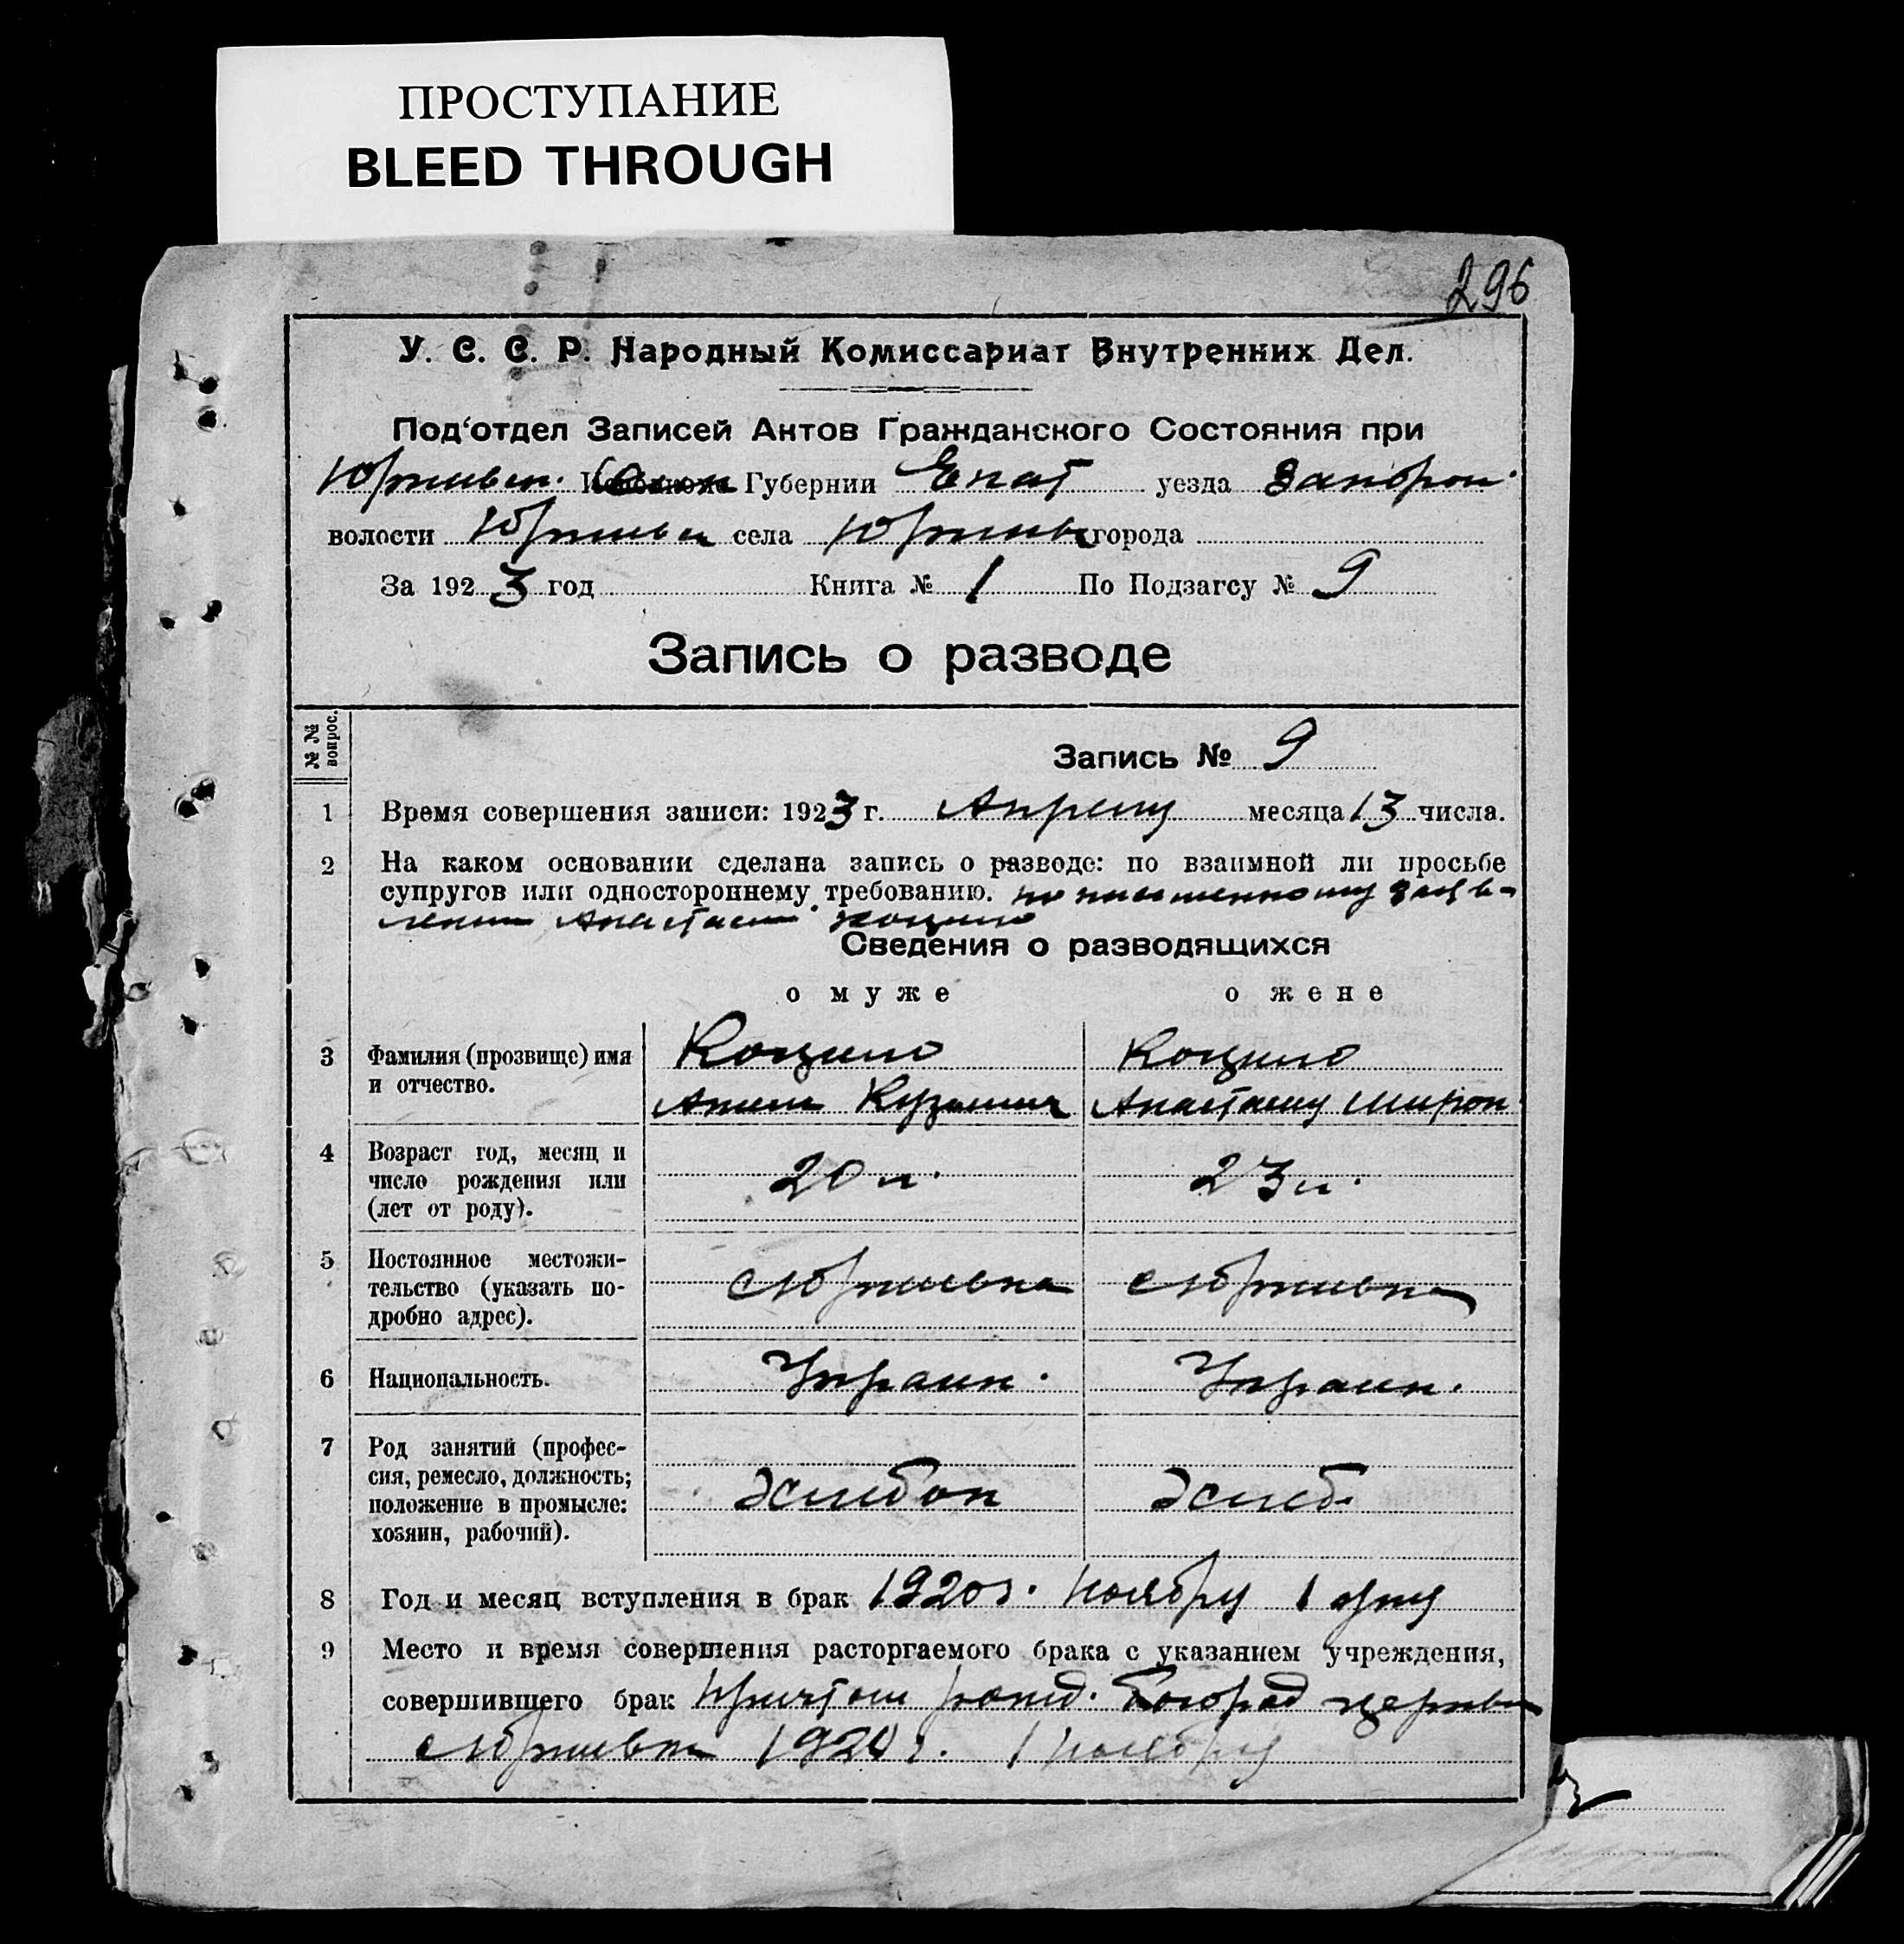 ПРОСТУПАНИЕ
BLEED THROUGH
296
У. С. С. Р. Народный Комиссариат Внутренних Дел.
Под‘отдел Записей Актов Гражданского Состояния при
Юрьивск. Губернии Екат уезда Запорож.
волости села города
За 1923 год Книга № 1 По Подзагсу № 9
Запись о разводе
№№ вопрос.
Запись № 9
1 Время совершения записи: 1923 г. Апрелу месяца 13 числа.
2 На каком основании сделана запись о разводе: по взаимной ли просьбе
супругов или одностороннему требованию. по письменному заяв-
лению Анастасии Коцило
Сведения о разводящихся
о муже о жене
3 Фамилия (прозвище) имя Коцило Коцило
и отчество. Кузьмич Анастасиу Мирон
4 Возраст год, месяц и
число рождения или 20 л. 23 л.
(лет от роду).
5 Постоянное местожи-
тельство (указать по-
дробно адрес).
6 Национальность. Украин. Украин.
7 Род занятий (профес-
сия, ремесло, должность;
положение в промысле: Хлебоп Хлеб.
хозяин, рабочий).
8 Год и месяц вступления в брак 1920 г. Ноябру 1 дну
9 Место и время совершения расторгаемого брака с указанием учреждения,
совершившего брак Причтом рожд. Богород церкви
1920 г. 1 ноябру